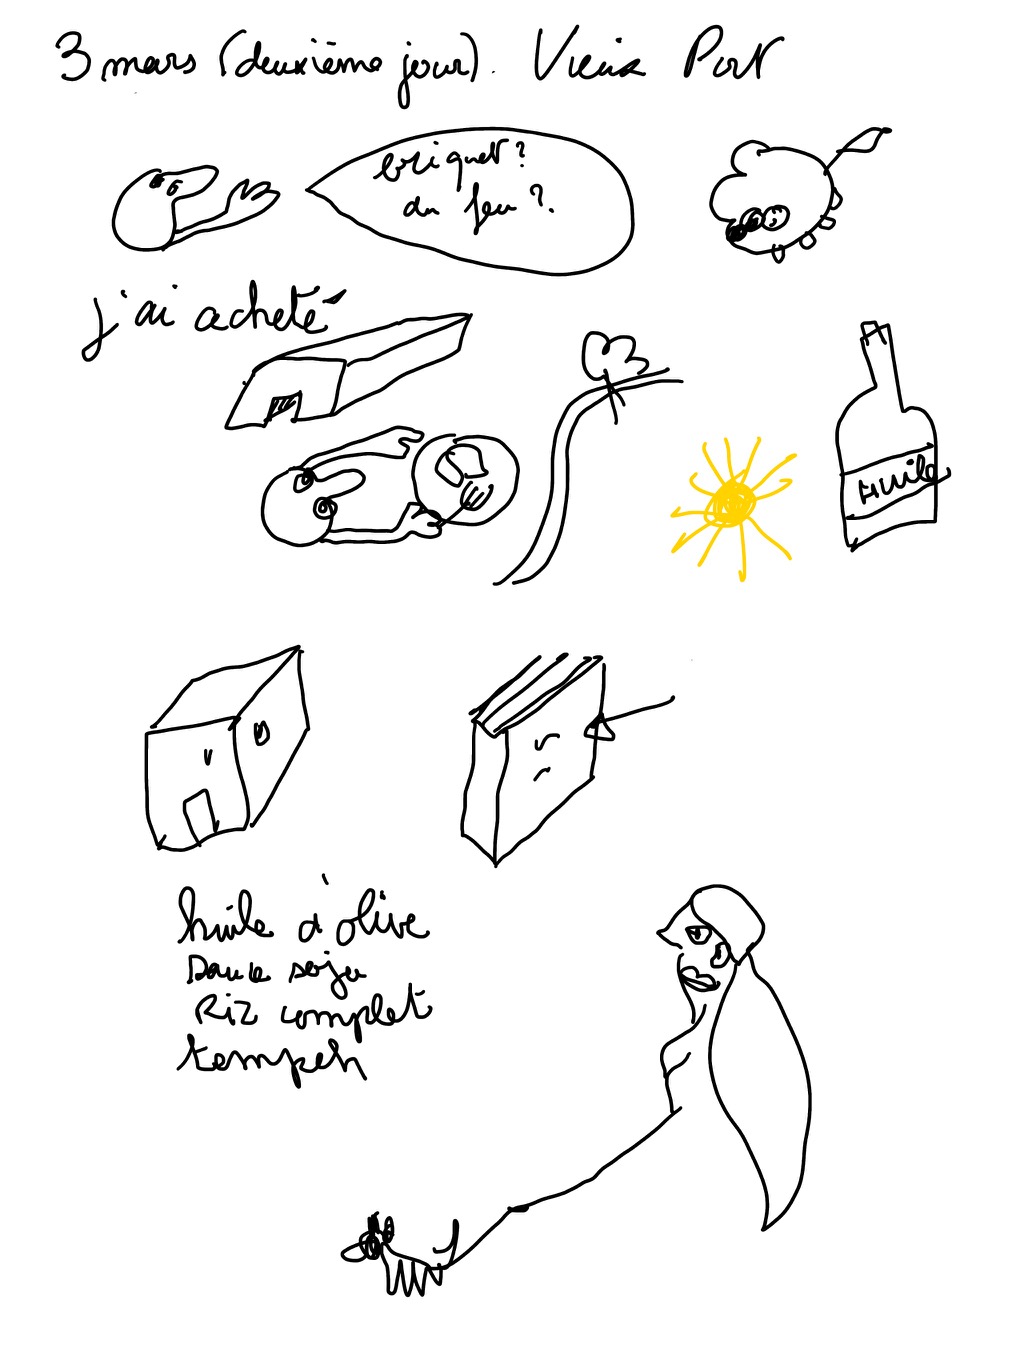 3 mars (deuxième jour). Vieux Port
briquet ?
du feu ?.
j'ai acheté
Huile
huile d'olive
sauce soja
Riz complet
tempeh